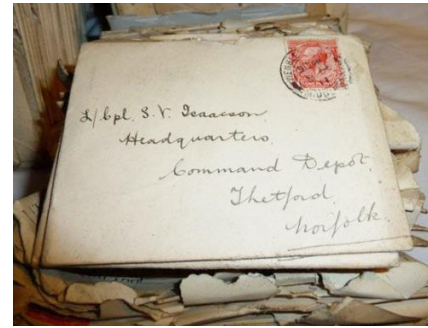 L/Cpl. S. V. Isaacson
Headquarters
Command Depot,
Thetford,
Norfolk.